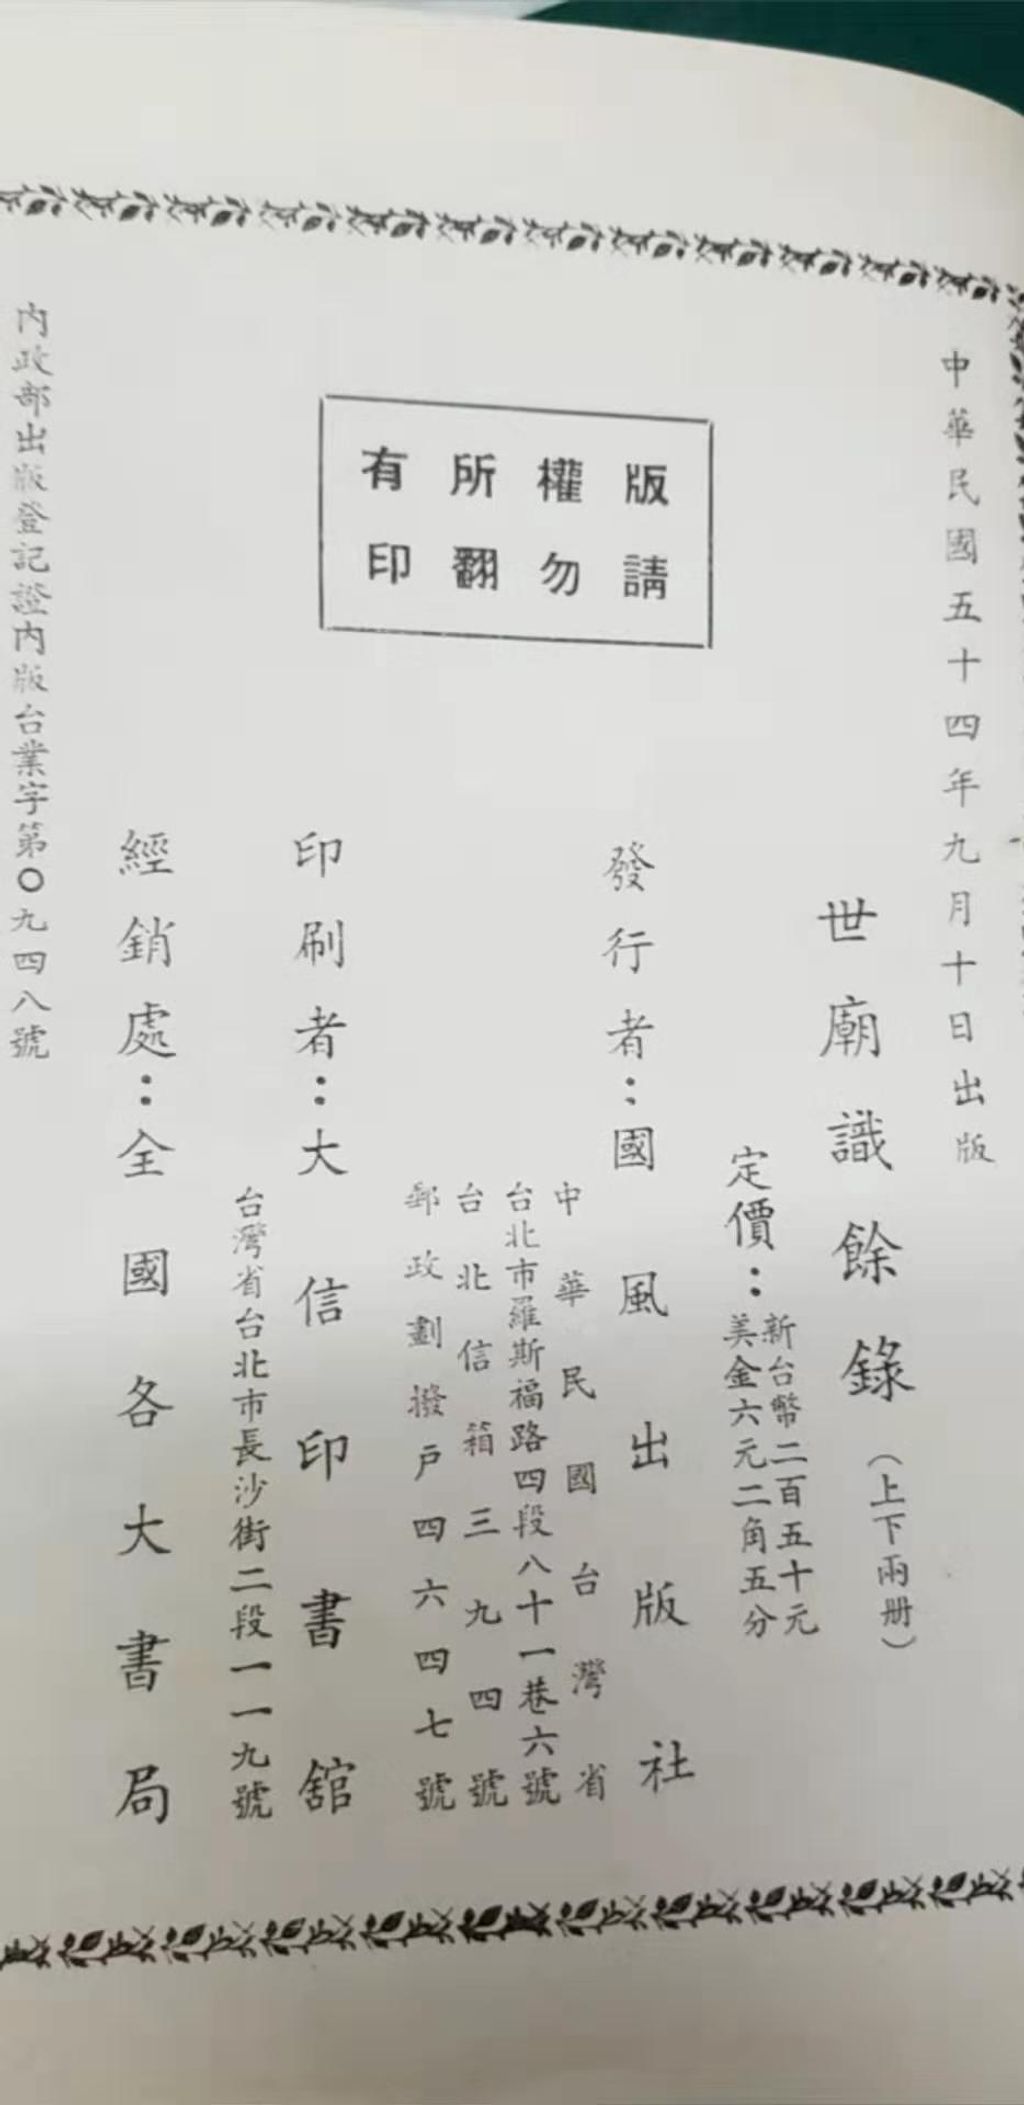 中華民國五十四年九月十日出版
世廟識餘錄（上下兩册）
定價：新台幣二百五十元
美金六元二角五分
版權所有
請勿翻印
發行者：國風出版社
中華民國台灣省
台北市羅斯福路四段八十一巷六號
台北信箱三九四號
郵政劃撥戶四六四七號
印刷者：大信印書舘
台灣省台北市長沙街二段一一九號
經銷處：全國各大書局
內政部出版登記證內版台業字第〇九四八號